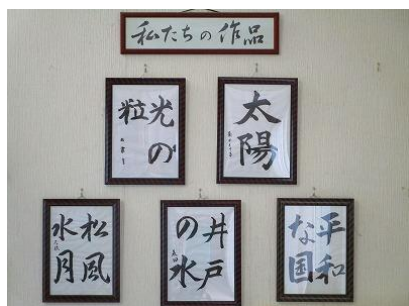 私たちの作品
光の
粒
太陽
松風
水月
井戸
の水
平和
な国